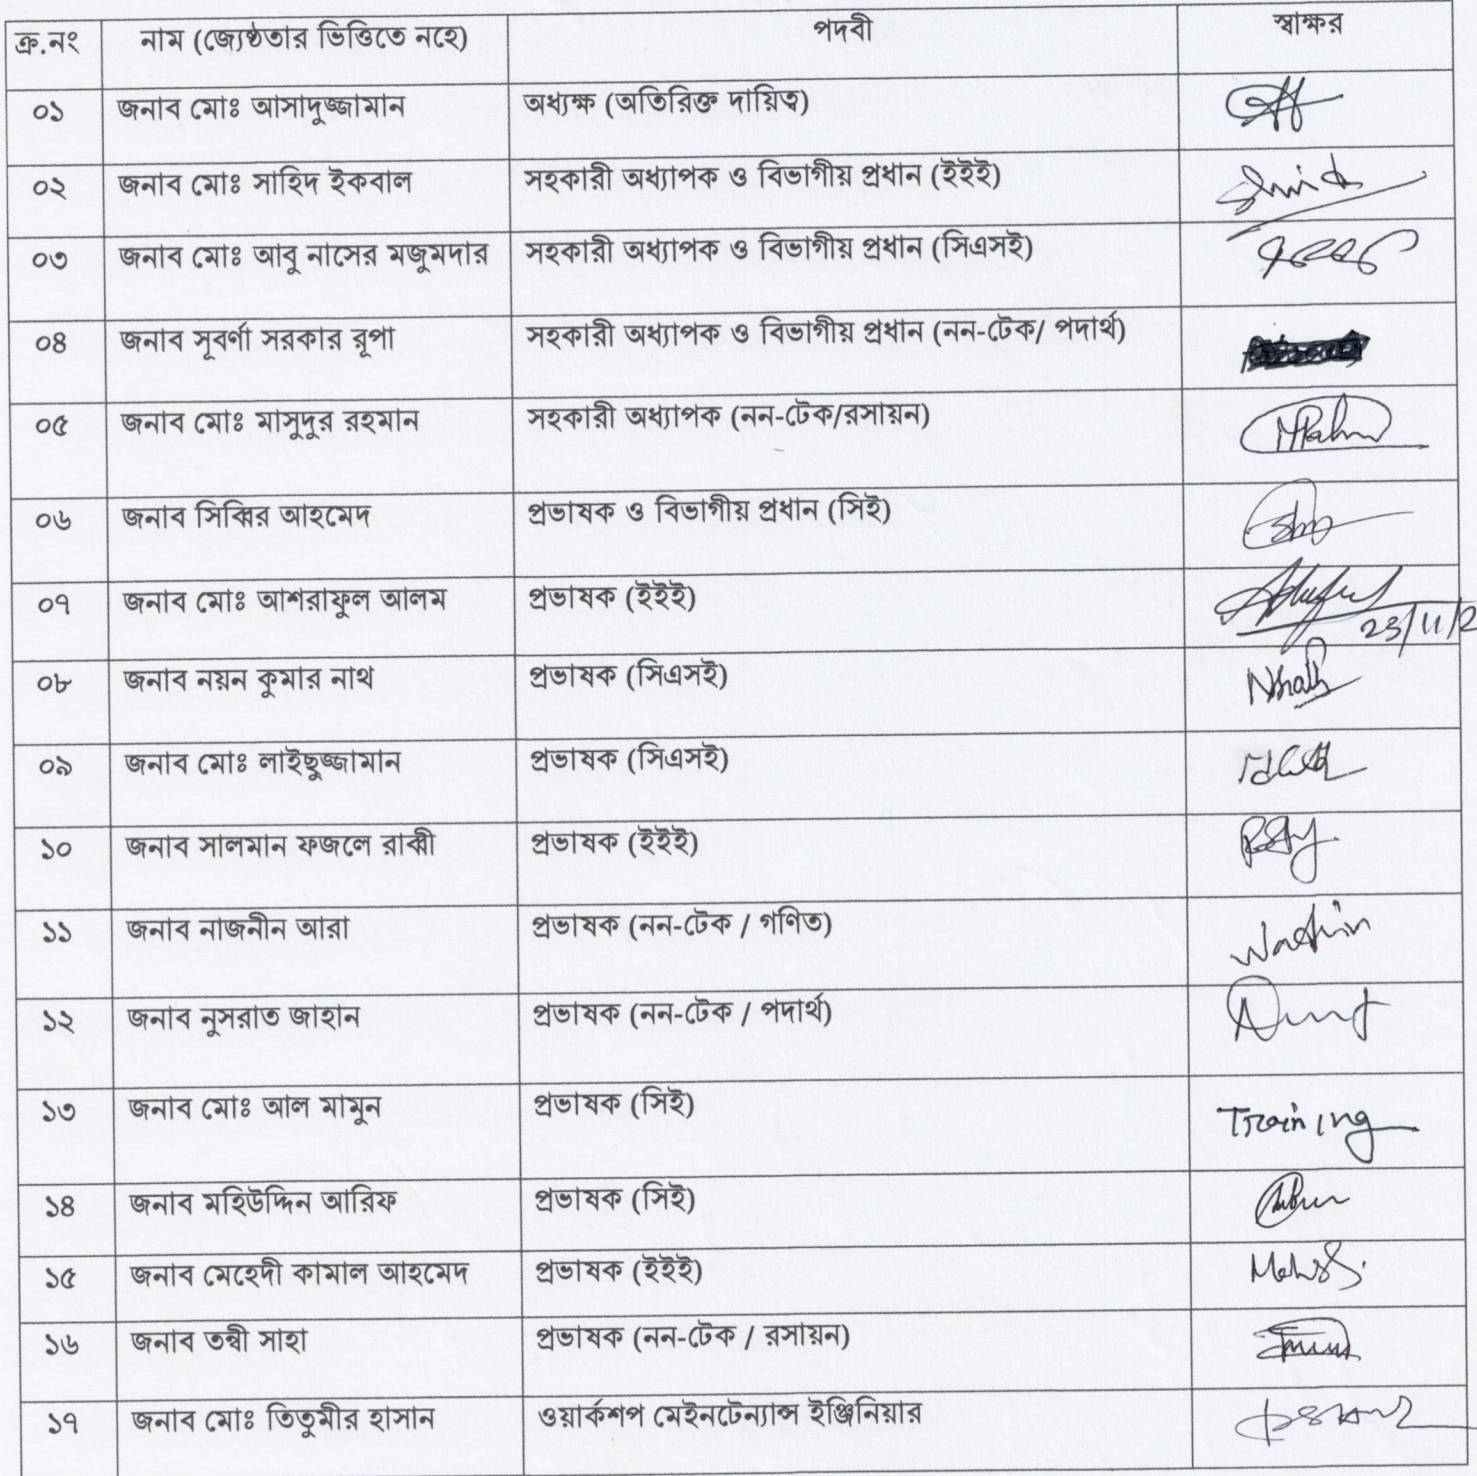 ক্র.নং নাম (জ্যেষ্ঠতার ভিত্তিতে নহে) পদবী স্বাক্ষর
০১ জনাব মোঃ আসাদুজ্জামান অধ্যক্ষ (অতিরিক্ত দায়িত্ব)
০২ জনাব মোঃ সাহিদ ইকবাল সহকারী অধ্যাপক ও বিভাগীয় প্রধান (ইইই)
০৩ জনাব মোঃ আবু নাসের মজুমদার সহকারী অধ্যাপক ও বিভাগীয় প্রধান (সিএসই)
০৪ জনাব সূবর্ণা সরকার রূপা সহকারী অধ্যাপক ও বিভাগীয় প্রধান (নন-টেক/ পদার্থ)
০৫ জনাব মোঃ মাসুদুর রহমান সহকারী অধ্যাপক (নন-টেক/রসায়ন)
০৬ জনাব সিব্বির আহমেদ প্রভাষক ও বিভাগীয় প্রধান (সিই)
০৭ জনাব মোঃ আশরাফুল আলম প্রভাষক (ইইই)
০৮ জনাব নয়ন কুমার নাথ প্রভাষক (সিএসই)
০৯ জনাব মোঃ লাইছুজ্জামান প্রভাষক (সিএসই)
১০ জনাব সালমান ফজলে রাব্বী প্রভাষক (ইইই)
১১ জনাব নাজনীন আরা প্রভাষক (নন-টেক / গণিত)
১২ জনাব নুসরাত জাহান প্রভাষক (নন-টেক / পদার্থ)
১৩ জনাব মোঃ আল মামুন প্রভাষক (সিই) Training
১৪ জনাব মহিউদ্দিন আরিফ প্রভাষক (সিই)
১৫ জনাব মেহেদী কামাল আহমেদ প্রভাষক (ইইই)
১৬ জনাব তন্বী সাহা প্রভাষক (নন-টেক / রসায়ন)
১৭ জনাব মোঃ তিতুমীর হাসান ওয়ার্কশপ মেইনটেন্যান্স ইঞ্জিনিয়ার